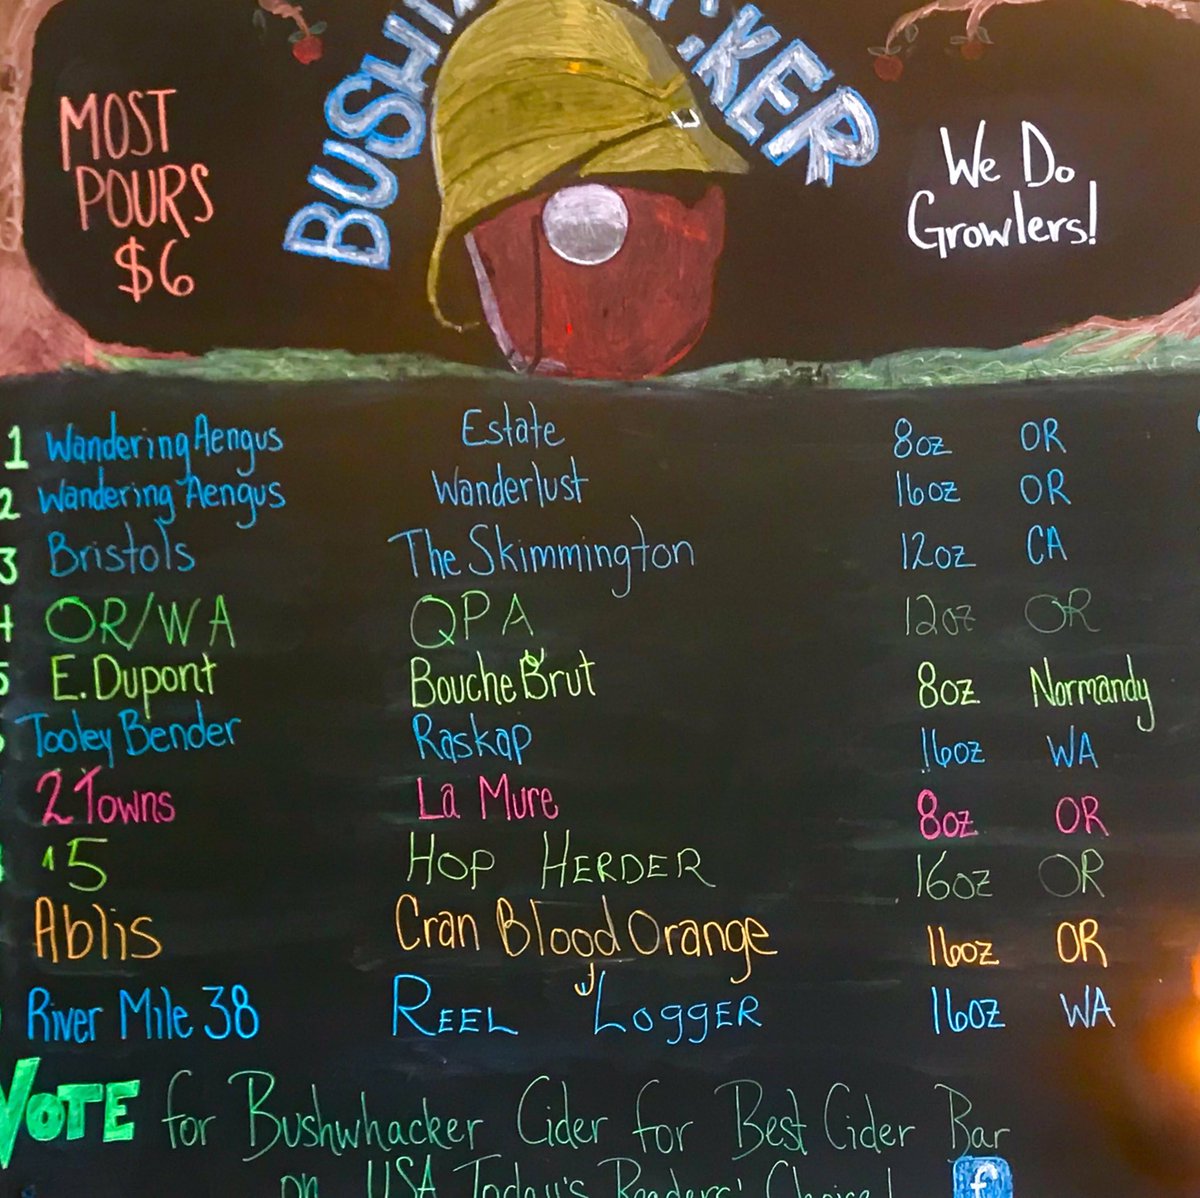 MOST
POURS
$6
We Do
Growlers!
1 Wandering Aengus Estate 8oz OR
2 Wandering Aengus Wanderlust 16oz OR
3 Bristols The Skimmington 12oz CA
4 OR/WA QPA 12oz OR
5 E. Dupont Bouche Brut 8oz Normandy
Tooley Bender Raskap 16oz WA
2 Towns La Mure 8oz OR
15 HOP HERDER 16oz OR
Ablis Cran Blood Orange 16oz OR
River Mile 38 REEL LOGGER 16oz WA
VOTE for Bushwhacker Cider for Best Cider Bar
on USA Today's Readers' Choice! f